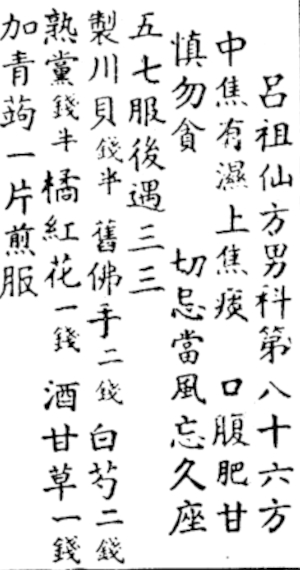 呂祖仙方男科第八十六方
中焦有濕上焦痰 口腹肥甘
慎勿貪 切忌當風忘久座
五七服後遇三三
製川貝錢半 舊佛手二錢 白芍二錢
熟黨錢半 橘紅花一錢 酒甘草一錢
加青蒟一片煎服